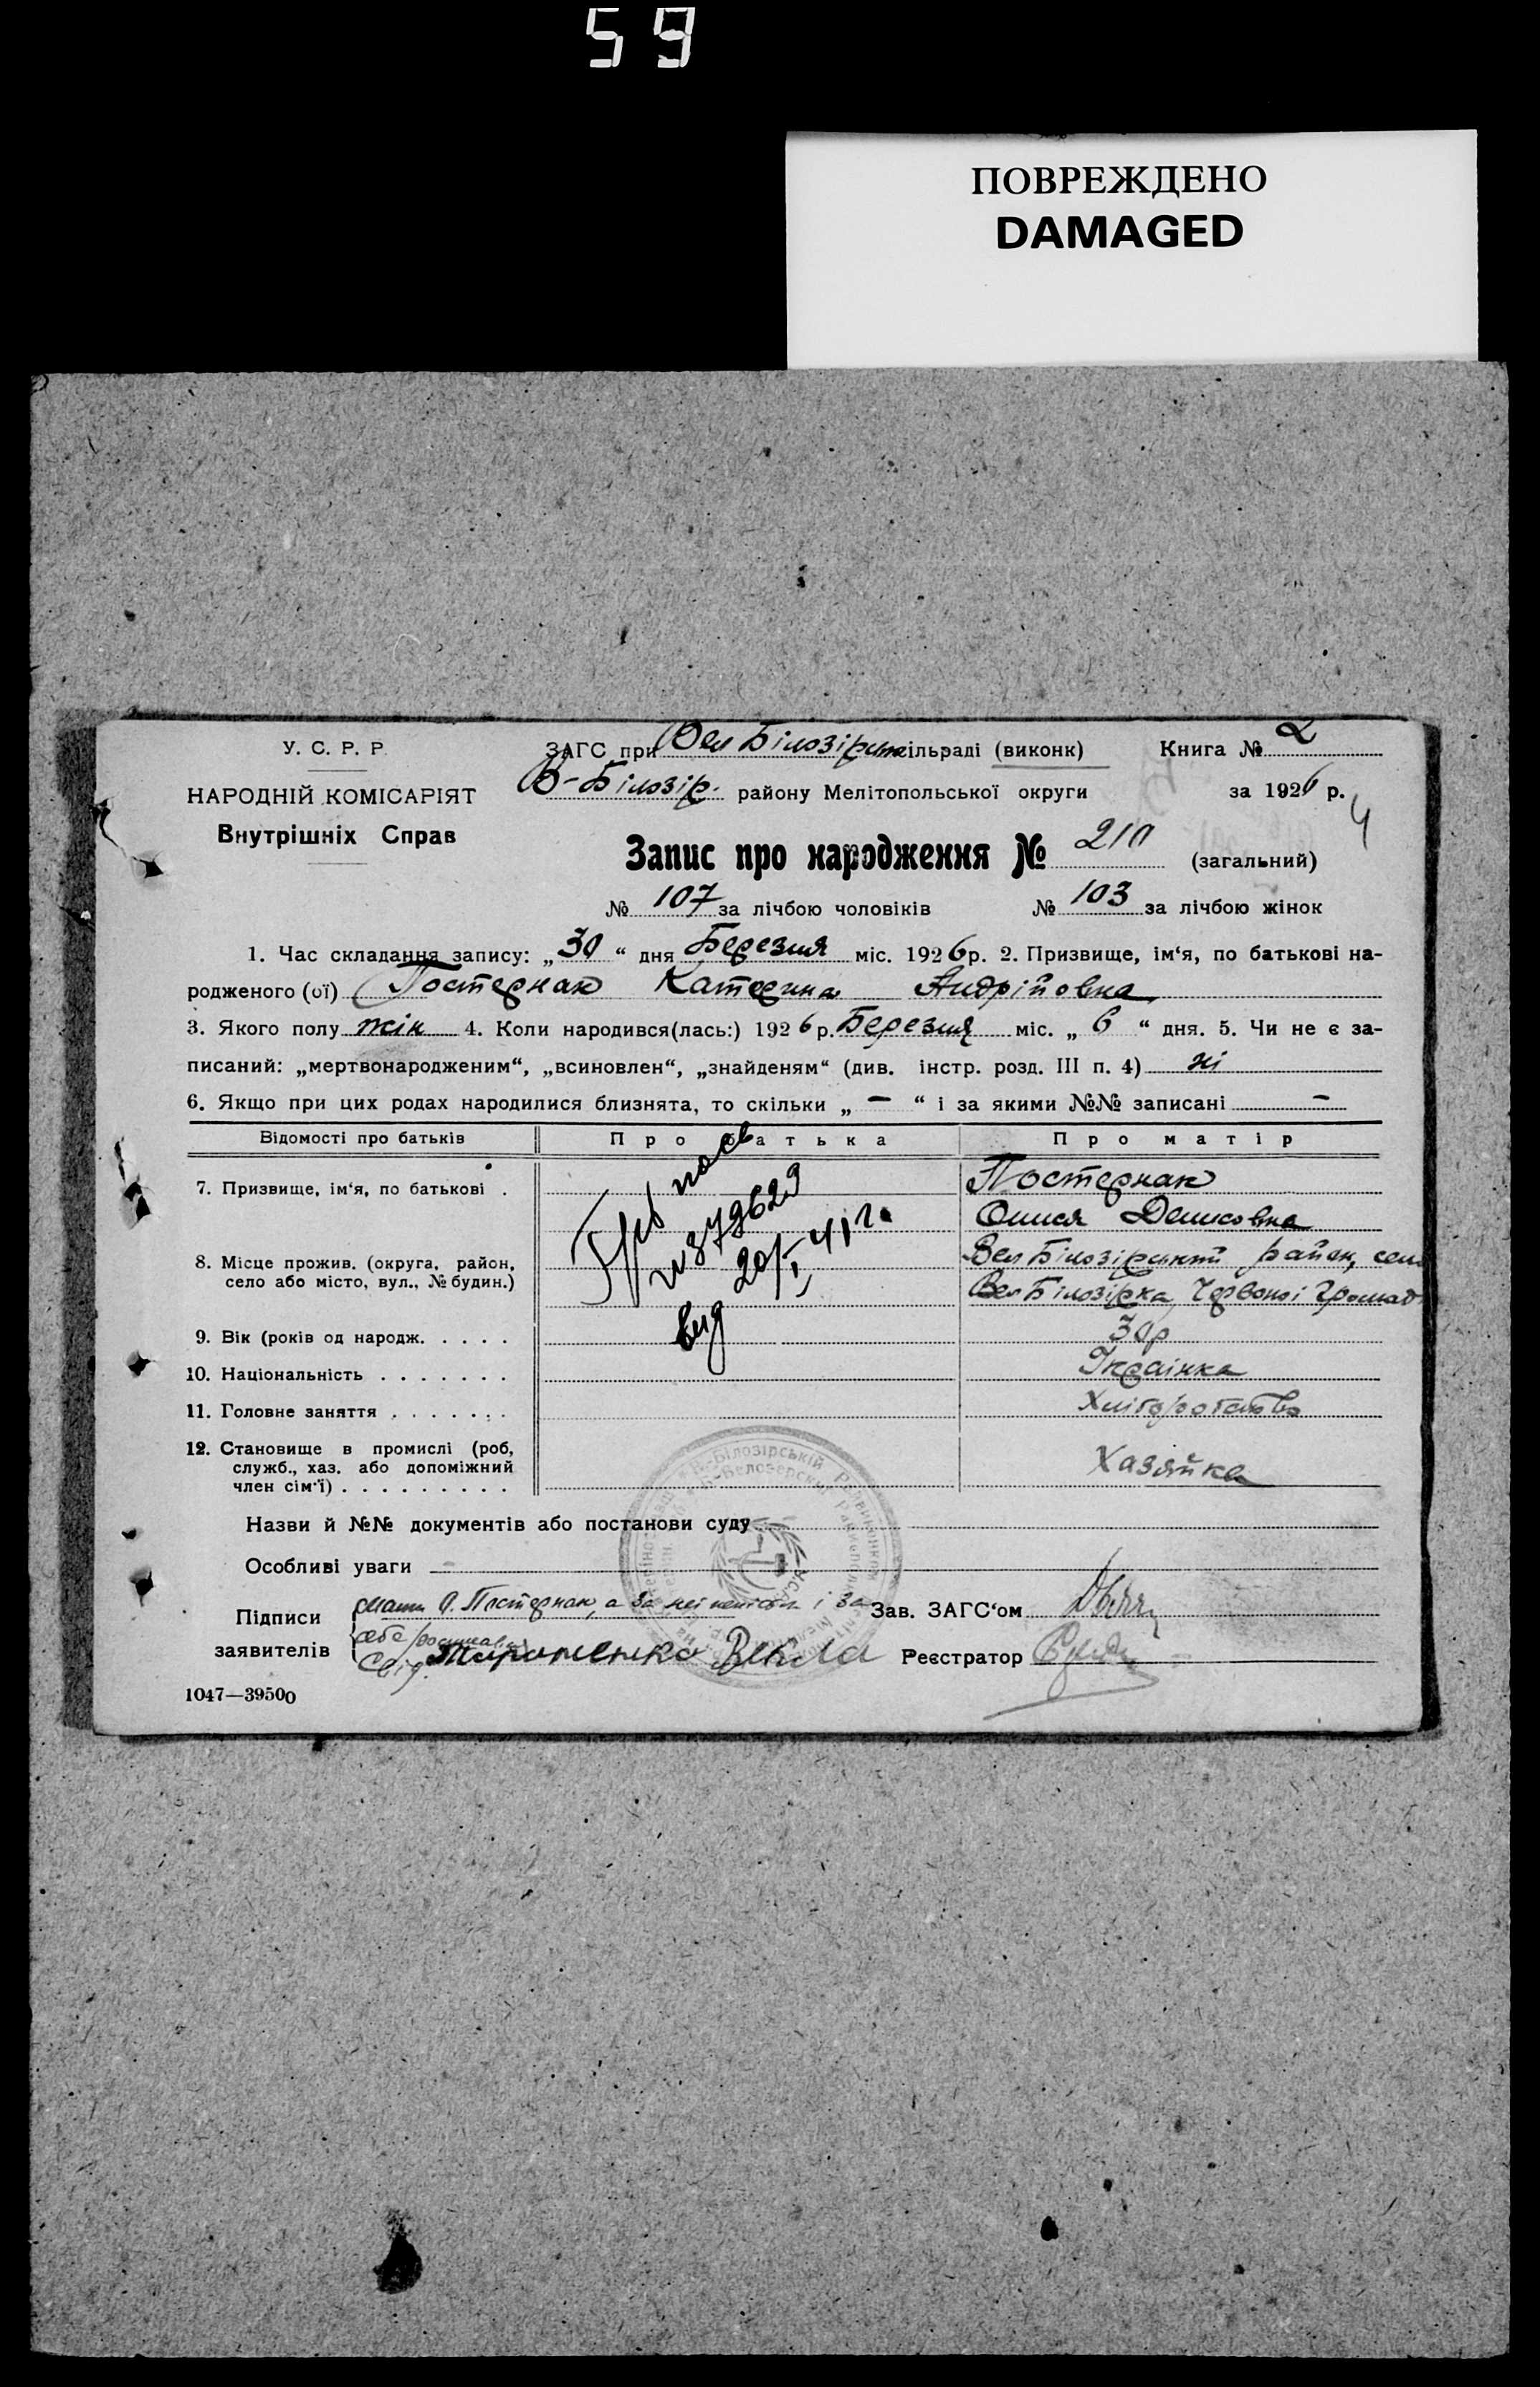 59
ПОВРЕЖДЕНО
DAMAGED
У. С. Р. Р.
НАРОДНІЙ КОМІСАРІЯТ
Внутрішніх Справ
ЗАГС при Вел Білозірськ сільраді (виконк)
Книга № 2
В-Білозір. району Мелітопольської округи
за 1926 р.
4
Запис про народження № 210 (загальний)
№ 107 за лічбою чоловіків № 103 за лічбою жінок
1. Час складання запису: „30“ дня Березня міс. 1926 р. 2. Призвище, ім‘я, по батькові на-
родженого (ої) Постернак Катерина Андрійовна
3. Якого полу жін 4. Коли народився(лась:) 1926 р. Березня міс. „6“ дня. 5. Чи не є за-
писаний: „мертвонародженим“, „всиновлен“, „знайденям“ (див. інстр. розд. III п. 4) ні
6. Якщо при цих родах народилися близнята, то скільки „ — “ і за якими №№ записані —
Відомості про батьків Про батька Про матір
7. Призвище, ім‘я, по батькові . Постернак
Денисовна
8. Місце прожив. (округа, район, село або місто, вул., № будин.) район, село
Вел Білозірка Червоної Громад
9. Вік (років од народж. . . . . 30р
10. Національність . . . . . . . Українка
11. Головне заняття . . . . . . Хліборобство
12. Становище в промислі (роб,
служб., хаз. або допоміжний
член сім‘ї) . . . . . . . . . Хазяйка
№ 379629
20/I 41 г.
вид
Назви й №№ документів або постанови суду
Особливі уваги —
Підписи
заявителів
мати О. Постернак, а за неї і за
себе
Свід. Векла
Зав. ЗАГС‘ом
Реєстратор
1047—39500